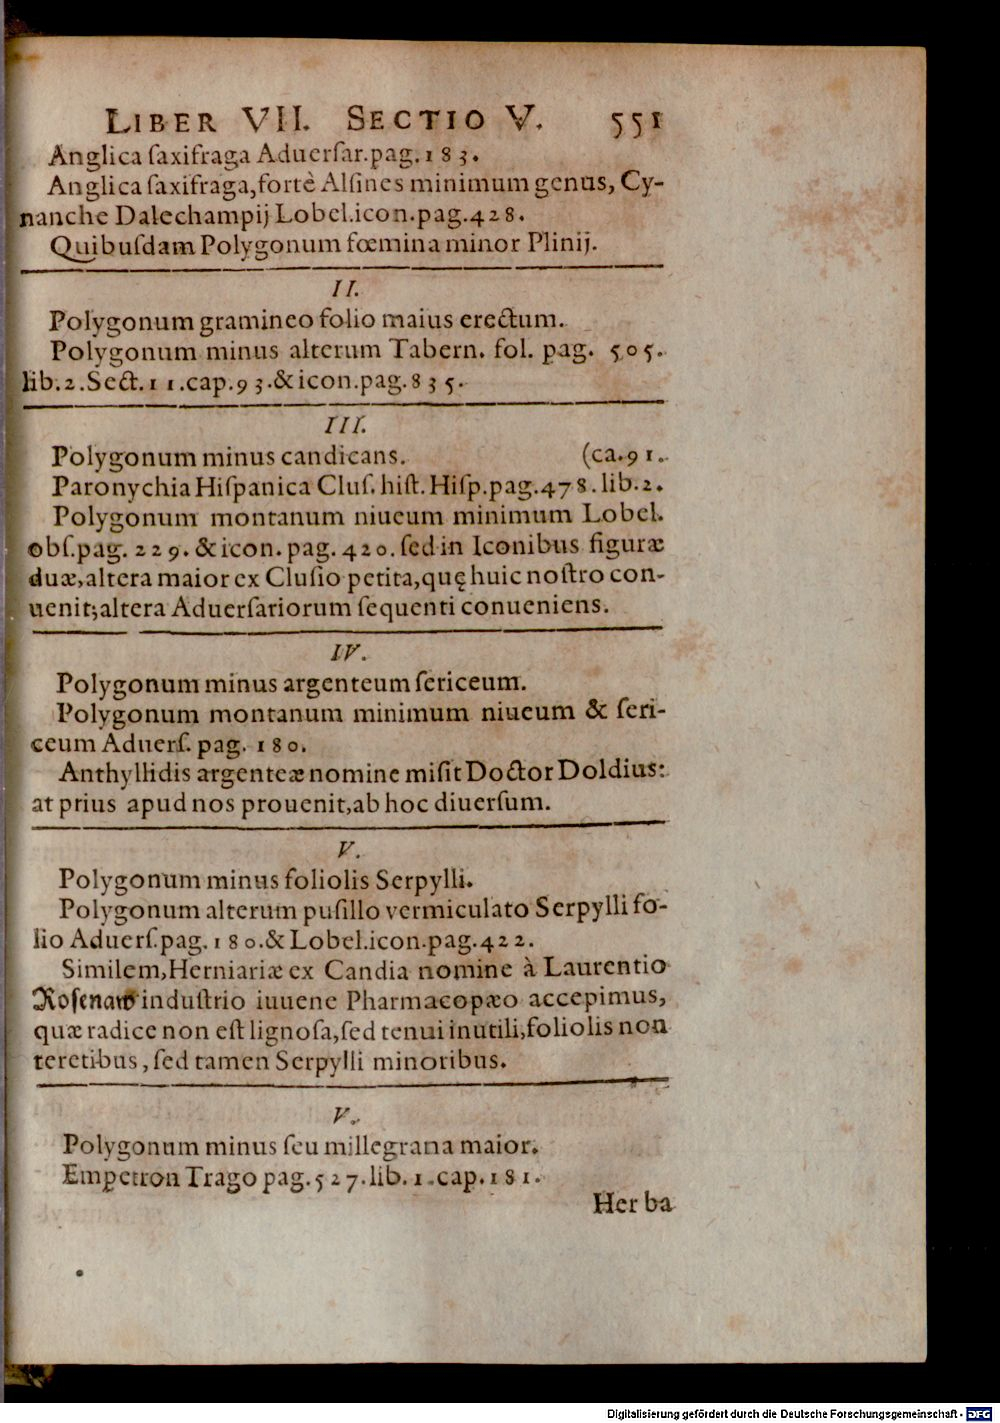 LIBER VII. SECTIO V. 551
Anglica ſaxifraga Aduerſar.pag.183.
Anglica ſaxifraga,fortè Alſines minimum genus, Cy-
nanche Dalechampij Lobel.icon.pag.428.
Quibuſdam Polygonum fœmina minor Plinij.
II.
Polygonum gramineo folio maius erectum.
Polygonum minus alterum Tabern. fol. pag. 505.
lib.2.Sect.11.cap.93.& icon.pag.835.
III.
Polygonum minus candicans. (ca.91.
Paronychia Hiſpanica Cluſ. hiſt. Hiſp.pag.478.lib.2.
Polygonum montanum niueum minimum Lobel.
obſ.pag. 229. & icon. pag. 420. ſed in Iconibus figuræ
duæ,altera maior ex Cluſio petita,quę huic noſtro con-
uenit;altera Aduerſariorum ſequenti conueniens.
IV.
Polygonum minus argenteum ſericeum.
Polygonum montanum minimum niueum & ſeri-
ceum Aduerſ. pag. 180.
Anthyllidis argenteæ nomine miſit Doctor Doldius:
at prius apud nos prouenit,ab hoc diuerſum.
V.
Polygonum minus foliolis Serpylli.
Polygonum alterum puſillo vermiculato Serpylli fo-
lio Aduerſ.pag.180.& Lobel.icon.pag.422.
Similem,Herniariæ ex Candia nomine à Laurentio
Roſenaw induſtrio iuuene Pharmacopæo accepimus,
quæ radice non eſt lignoſa,ſed tenui inutili,foliolis non
teretibus, ſed tamen Serpylli minoribus.
V.
Polygonum minus ſeu millegrana maior.
Empetron Trago pag.527.lib.1.cap.181.
Herba
Digitalisierung gefördert durch die Deutsche Forschungsgemeinschaft - DFG